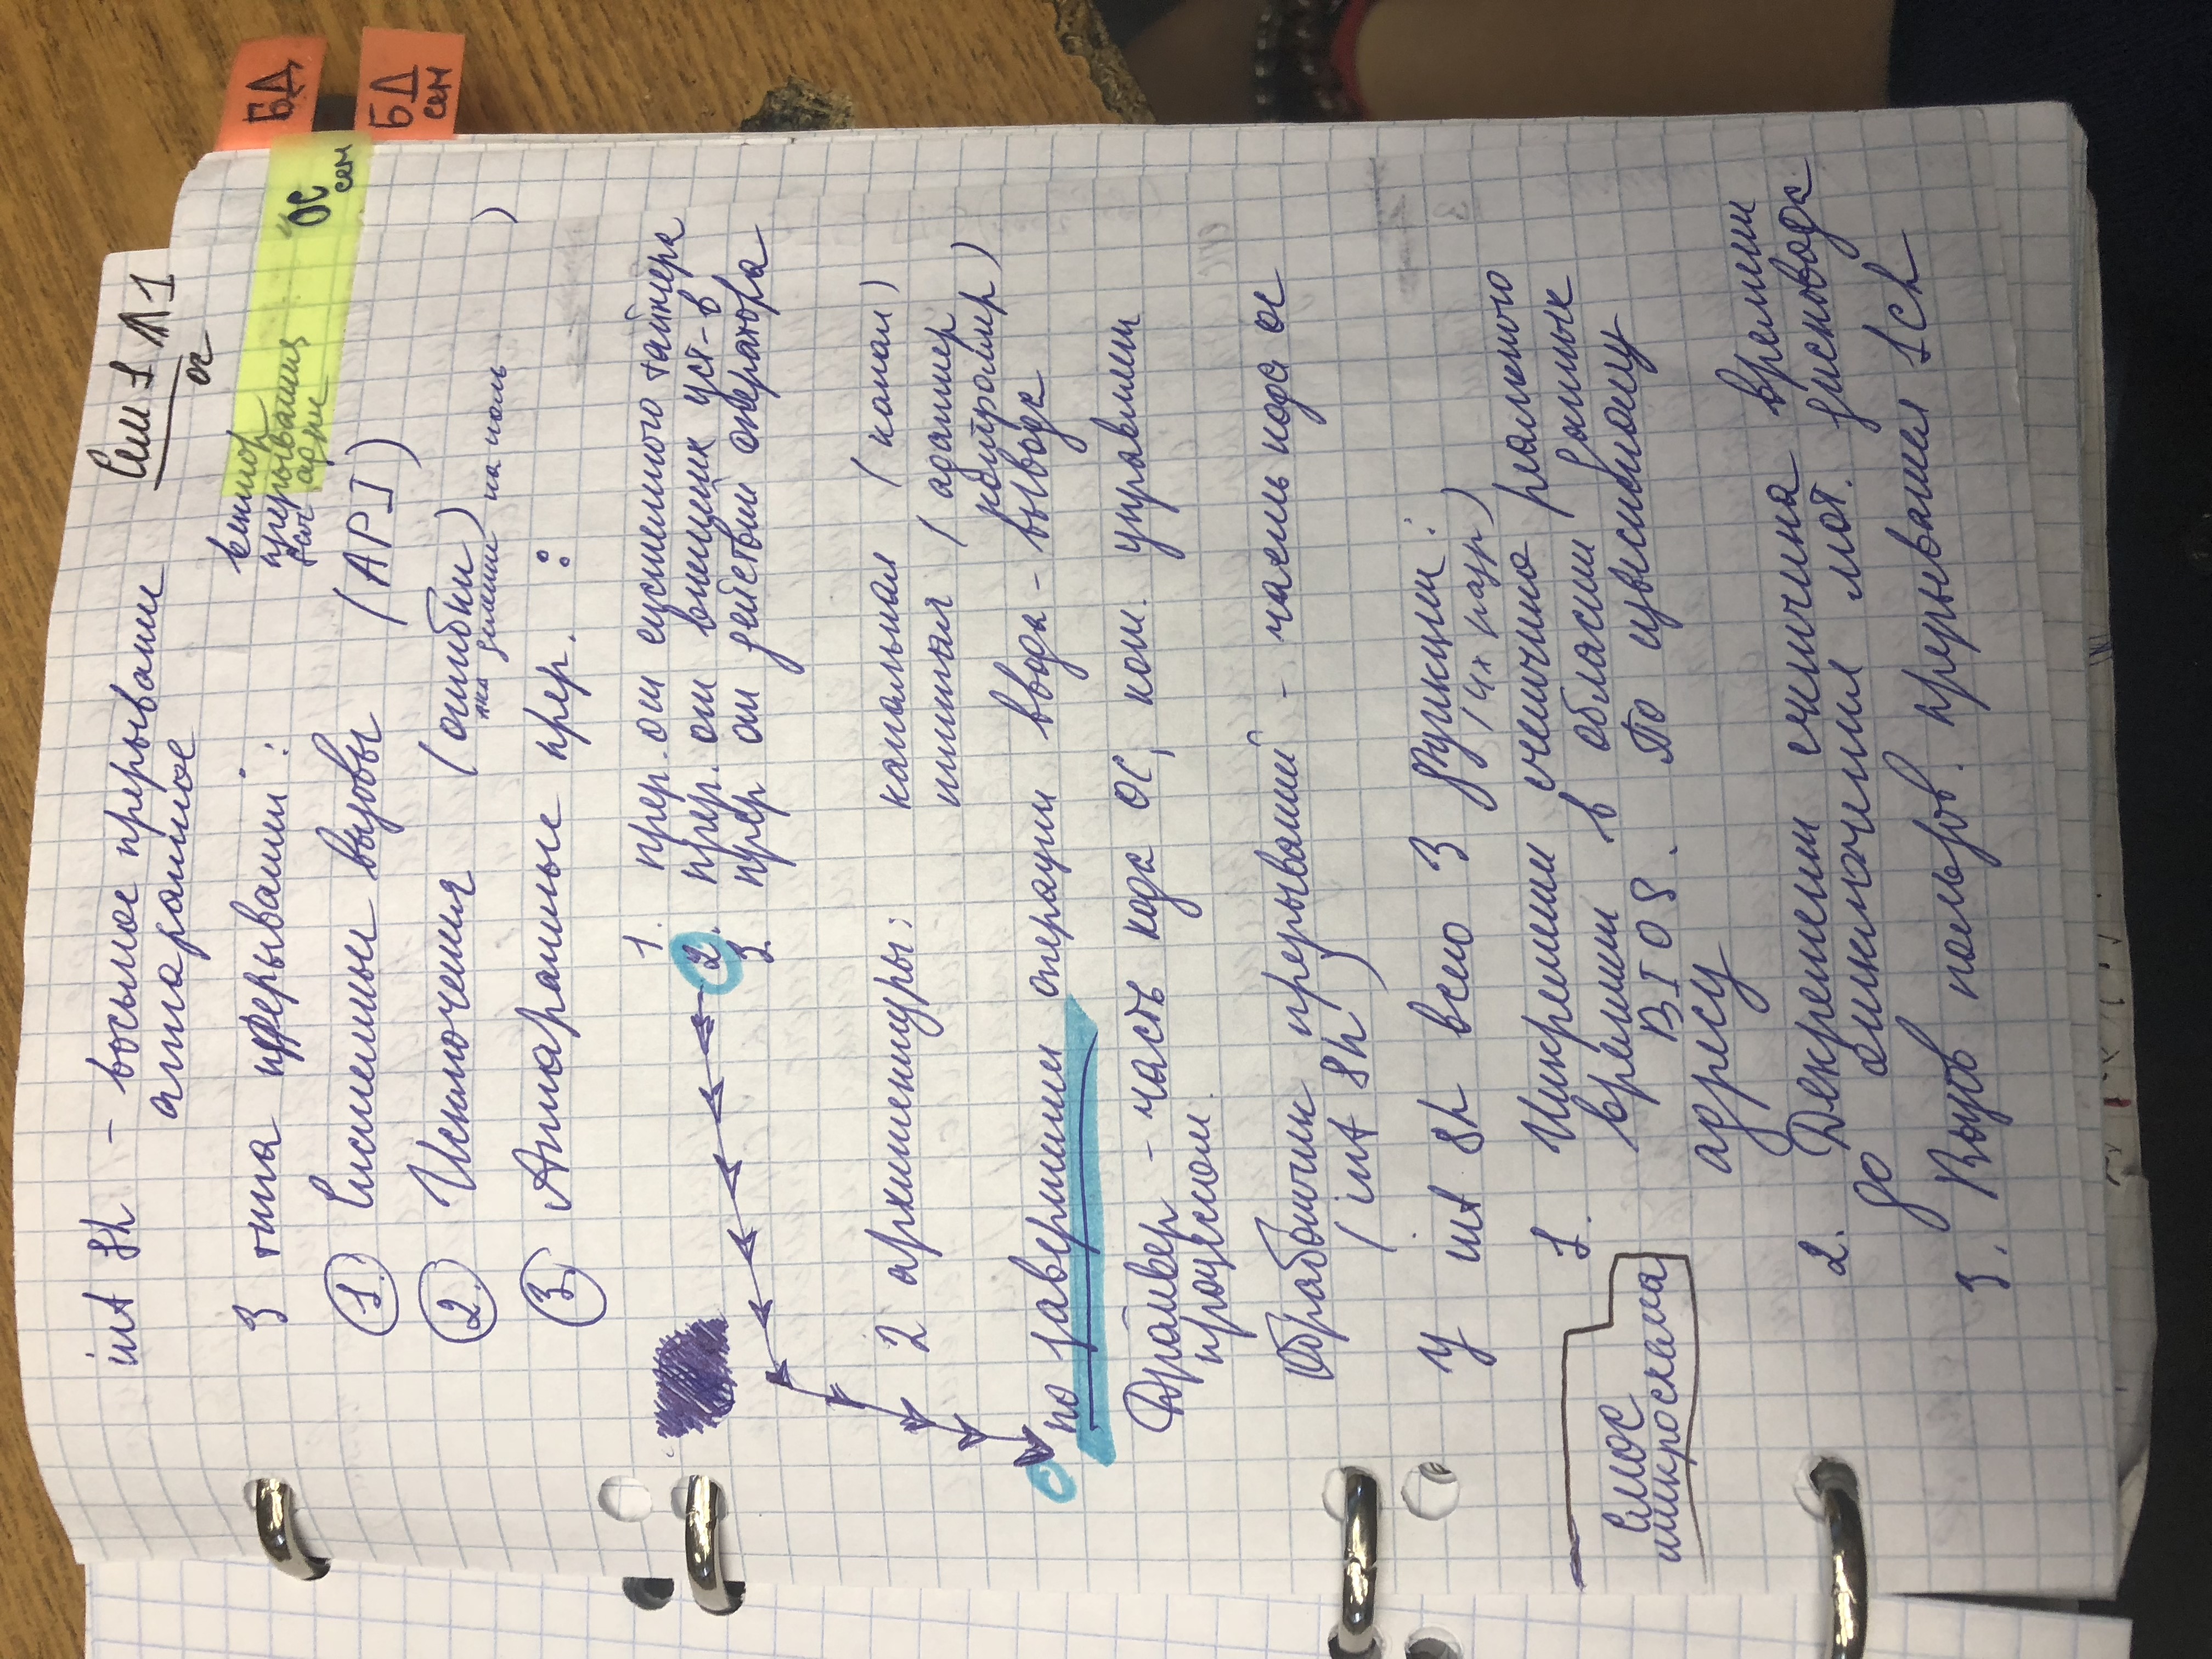 int 8h - восьмое прерывание
аппаратное
Сем 1 Л1
ос
3 типа прерываний:
вектор
прерывания
адри
ОС
сем
БД
БД
сем
1. Системные вызовы (API)
2. Исключения (ошибки)
деление на ноль )
3. Аппаратные прер. :
1. прер. от системного таймера
2. прер. от внешних уст-в
3. прер от действий оператора
2 архитектуры: канальная (канал)
шинная (адаптер
контроллер)
по завершении операции ввода - вывода
Драйвер - часть кода ОС, кот. управляет
процессом.
Обработчик прерываний - часть кода ос
(int 8h)
У int 8h всего 3 функции:
(4х разр)
1. Инкремент счетчика реального
времени в области данных
BIOS. По известному
адресу
смос
микросхема
2. Декремент счетчика времени
до отключения мот. дисковода
3. Вызов пользов. прерывания 1Ch